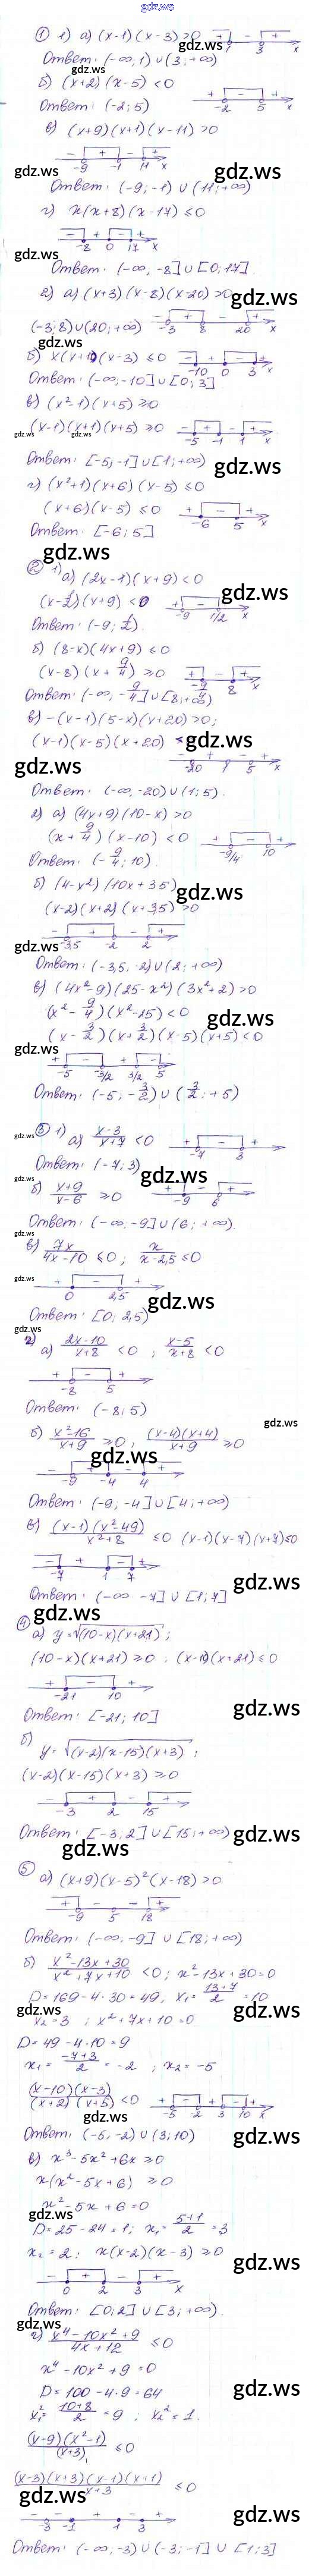 gdz.ws
① 1) а) (x-1)(x-3)>0 + - + 1 3 x
Ответ: (-∞;1)∪(3;+∞)
gdz.ws
б) (x+2)(x-5)<0 + - + -2 5 x
Ответ: (-2;5)
в) (x+9)(x+1)(x-11)>0
- + - + -9 -1 11 x
gdz.ws gdz.ws
Ответ: (-9;-1)∪(11;+∞)
г) x(x+8)(x-17)≤0
- + - + -8 0 17 x
gdz.ws
Ответ: (-∞,-8]∪[0;17]
2) а) (x+3)(x-8)(x-20)>0 gdz.ws
(-3;8)∪(20;+∞) - + - + -3 8 20 x
gdz.ws
б) x(x+10)(x-3)≤0 - + - + -10 0 3 x
Ответ: (-∞,-10]∪[0;3]
в) (x²-1)(x+5)≥0
(x-1)(x+1)(x+5)≥0 - + - + -5 -1 1 x
gdz.ws gdz.ws gdz.ws
Ответ: [-5;-1]∪[1;+∞) gdz.ws
г) (x²+1)(x+6)(x-5)≤0
(x+6)(x-5)≤0 + - + -6 5 x
Ответ: [-6;5]
gdz.ws
② 1) а) (2x-1)(x+9)<0
gdz.ws
(x-½)(x+9)<0 + - + -9 1/2 x
Ответ: (-9;½).
б) (8-x)(4x+9)≤0
(x-8)(x+9/4)≥0 + - + -9/4 8 x
Ответ: (-∞;-9/4]∪[8;+∞)
в) -(x-1)(5-x)(x+20)>0;
(x-1)(x-5)(x+20) gdz.ws
gdz.ws - + - + -20 1 5 x
Ответ: (-∞,-20)∪(1;5).
2) а) (4x+9)(10-x)>0
(x+9/4)(x-10)<0 + - + -9/4 10 x
Ответ: (-9/4;10).
б) (4-x²)(10x+35) gdz.ws
(x-2)(x+2)(x+3,5)>0
gdz.ws
- + - + -3,5 -2 2
Ответ: (-3,5;-2)∪(2;+∞)
в) (4x²-9)(25-x²)(3x²+2)>0
(x²-9/4)(x²-25)<0 gdz.ws
(x-3/2)(x+3/2)(x-5)(x+5)<0
gdz.ws
+ - + - + -5 -3/2 3/2 5
Ответ: (-5;-3/2)∪(3/2;+5)
gdz.ws
③ 1) а) x-3/x+7 <0 + - + -7 3
gdz.ws
Ответ: (-7;3) gdz.ws
gdz.ws
б) x+9/x-6 ≥0 + - + -9 6
Ответ: (-∞,-9]∪(6;+∞).
gdz.ws
в) 7x/4x-10 ≤0; x/x-2,5 ≤0
+ - + 0 2,5
Ответ: [0;2,5) gdz.ws
gdz.ws
2) а) 2x-10/x+8 <0; x-5/x+8 <0
+ - + -8 5
Ответ: (-8;5)
gdz.ws
б) x²-16/x+9 ≥0; (x-4)(x+4)/x+9 ≥0
gdz.ws
-9 -4 4
Ответ: (-9;-4]∪[4;+∞)
в) (x-1)(x²-49)/x²+8 ≤0 (x-1)(x-7)(x+7)≤0
- + - + -7 1 7
gdz.ws
Ответ: (-∞ -7]∪[1;7]
④ gdz.ws
а) y=√(10-x)(x+21);
(10-x)(x+21)≥0; (x-10)(x+21)≤0
+ - + -21 10
gdz.ws
Ответ: [-21;10]
б)
y=√(x-2)(x-15)(x+3);
(x-2)(x-15)(x+3)≥0
- + - + -3 2 15
Ответ: [-3,2]∪[15;+∞) gdz.ws
gdz.ws
⑤ а) (x+9)(x-5)²(x-18)>0
+ - - + -9 5 18
Ответ: (-∞,-9]∪[18;+∞) gdz.ws
б) x²-13x+30/x²+7x+10 <0; x²-13x+30=0
D=169-4·30=49, x₁=13+7/2=10
gdz.ws gdz.ws
x₂=3; x²+7x+10=0
D=49-4·10=9
x₁=-7+3/2=-2; x₂=-5.
(x-10)(x-3)/(x+2)(x+5) <0 + - + - + -5 -2 3 10 x
gdz.ws
Ответ: (-5,-2)∪(3;10) gdz.ws
в) x³-5x²+6x≥0
x(x²-5x+6)≥0
x²-5x+6=0
gdz.ws
D=25-24=1; x₁=5+1/2=3
x₂=2; x(x-2)(x-3)≥0 gdz.ws
- + - + 0 2 3 x
Ответ: [0;2]∪[3;+∞).
gdz.ws
г) x⁴-10x²+9/4x+12 ≤0
x⁴-10x²+9=0
D=100-4·9=64 gdz.ws
x₁²=10+8/2=9; x₂²=1.
(x-9)(x²-1)/(x+3) ≤0
(x-3)(x+3)(x-1)(x+1)/x+3 ≤0
gdz.ws gdz.ws
- - + - + -3 -1 1 3
Ответ: (-∞,-3)∪(-3;-1]∪[1;3]